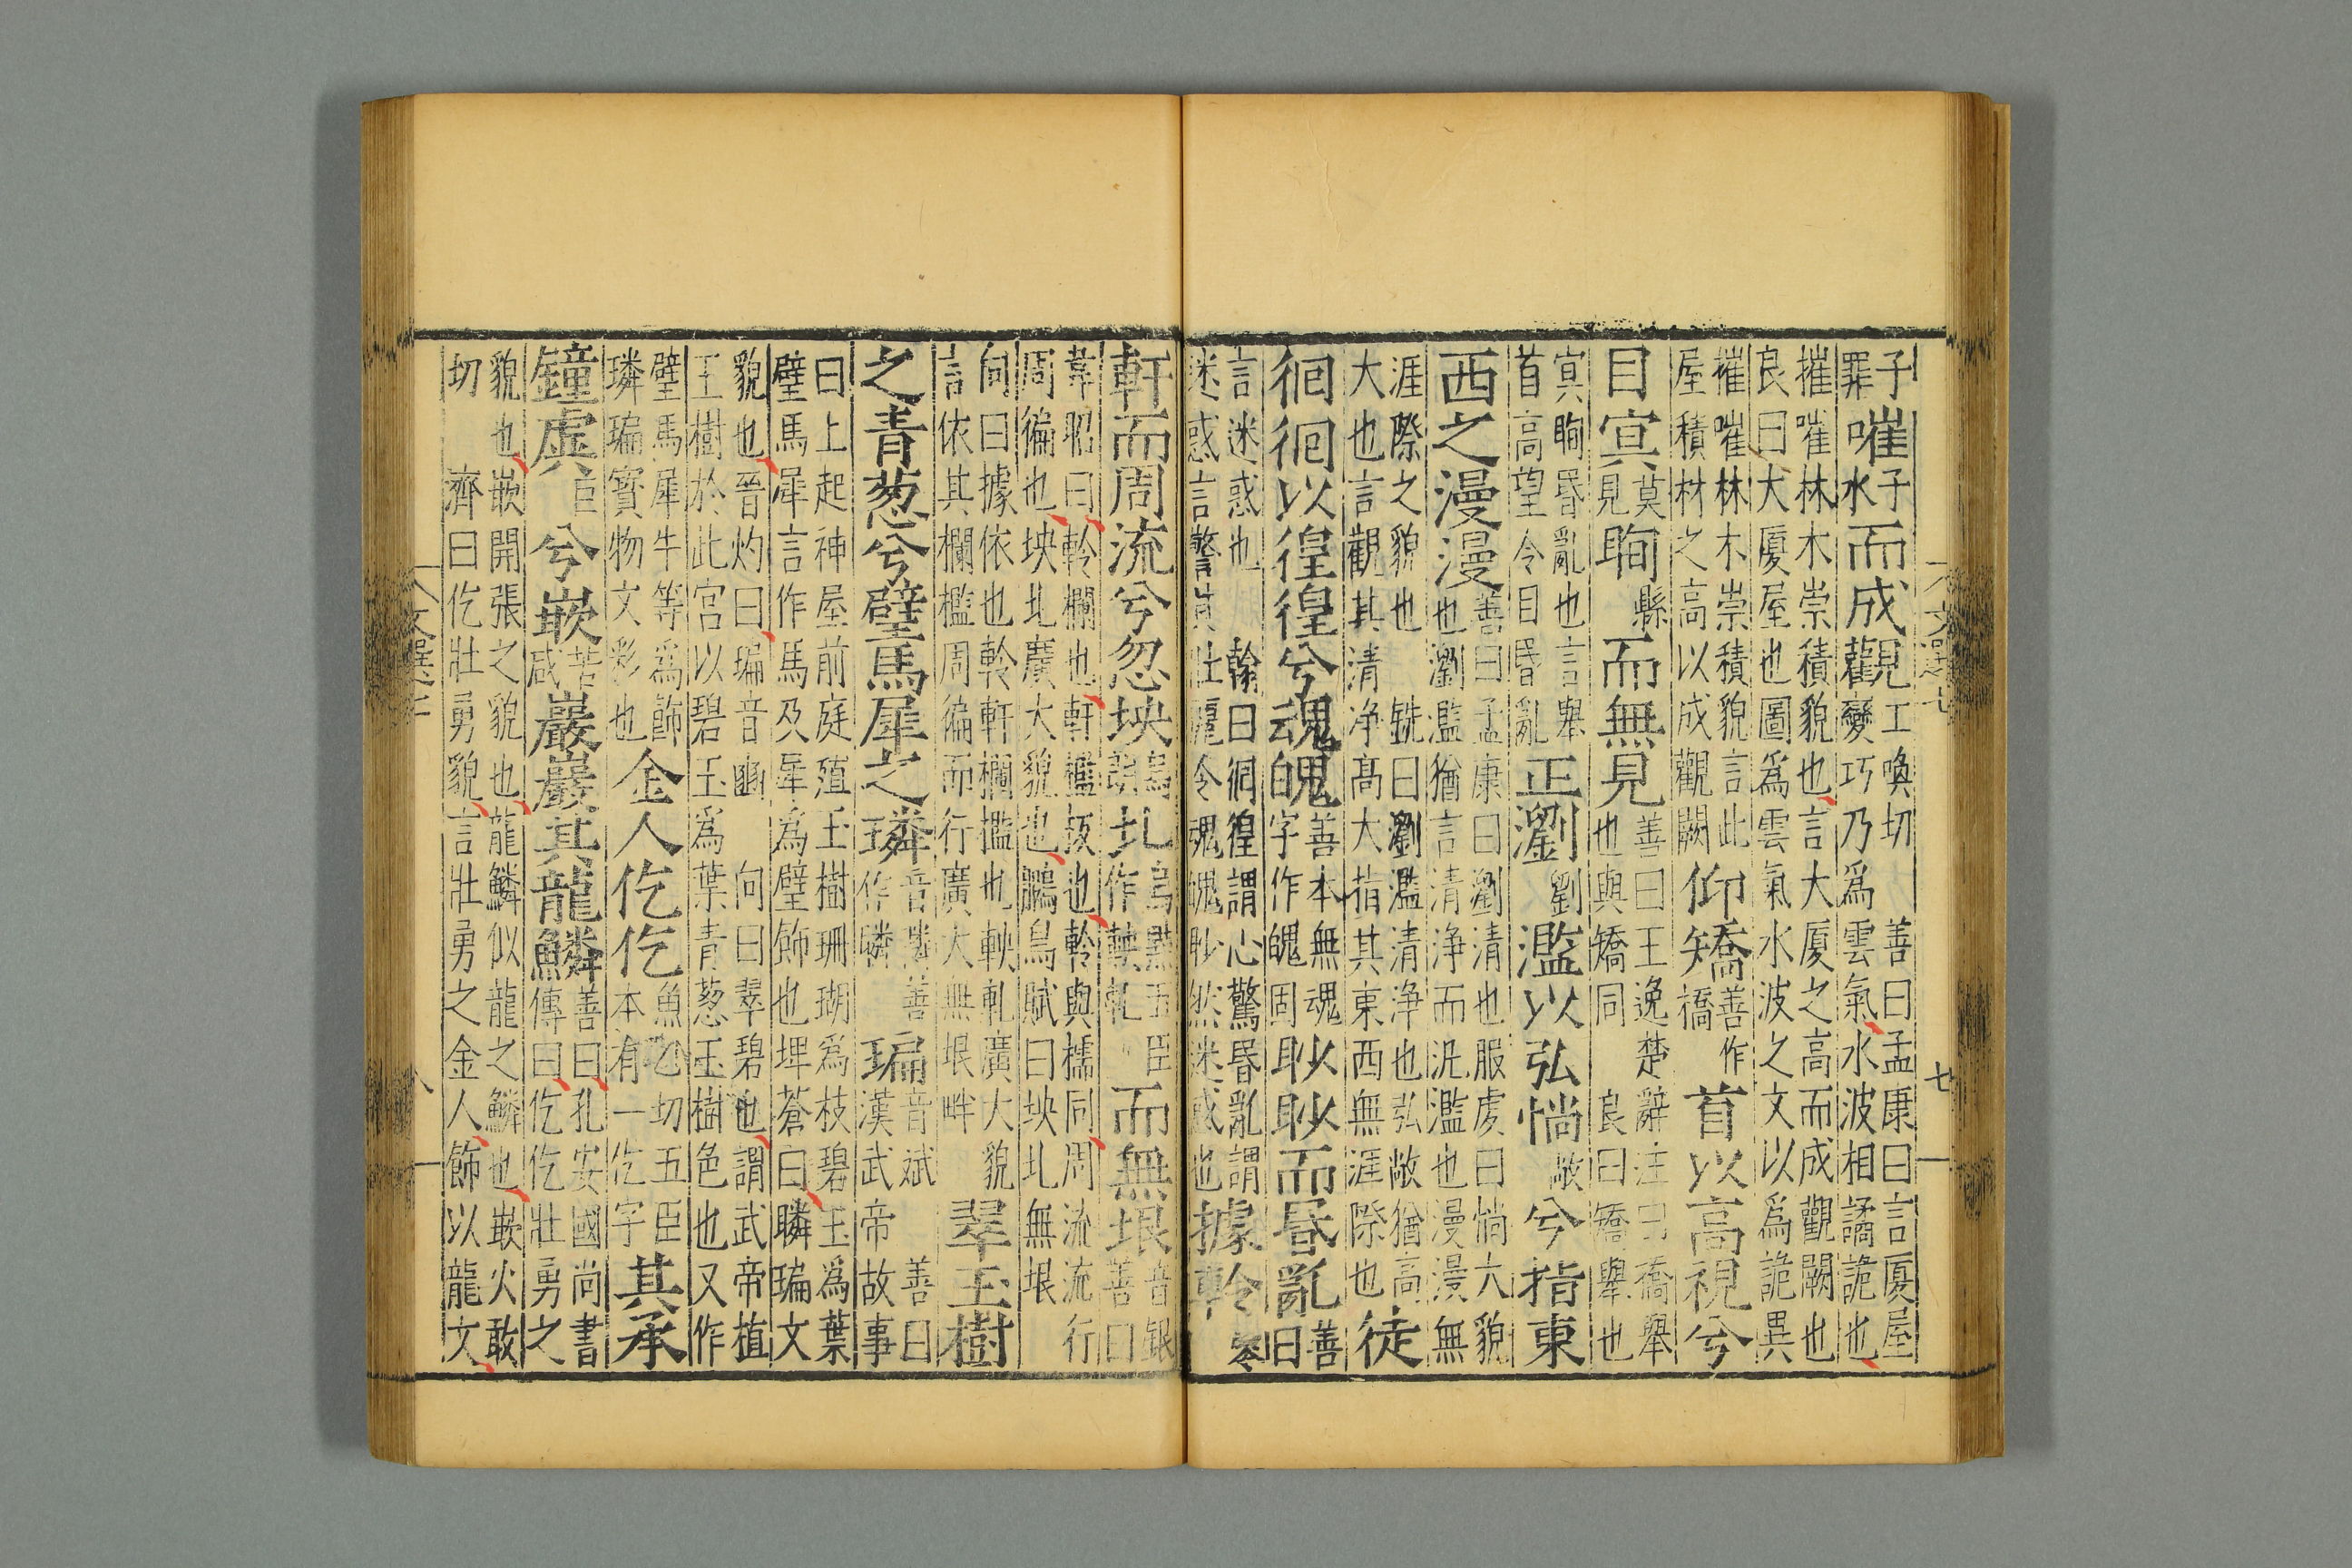 子罪嗺子水而成觀工喚切 善曰孟康曰言厦屋
變巧乃爲雲氣水波相譎詭也
摧嗺林木崇積貌也言大厦之高而成觀闕也
良曰大厦屋也圖爲雲氣水波之文以爲詭異
摧嗺林木崇積貌言此
屋積材之高以成觀闕仰矯善作橋首以高視兮
目冥莫見眴縣而無見善曰王逸楚辭注曰矯舉
也與矯同 良曰矯舉也
冥眴昬亂也言舉
首高望令目昬亂正瀏劉濫以弘惝敞兮指東
西之漫漫善曰孟康曰瀏清也服虔曰惝大貌
也瀏濫猶言清淨而汎濫也漫漫無
涯際之貌也 銑曰瀏濫清淨也弘敞猶高
大也言觀其清淨高大指其東西無涯際也徒
徊徊以徨徨兮魂魄善本無魂字作魄固眇眇而昬亂善曰
言迷惑也 翰曰徊徨謂心驚昬亂謂
迷惑言驚其壯麗令魂魄眇然迷惑也據軨零
軒而周流兮忽坱烏朗圠烏黠五臣作軮軋而無垠音銀善曰
韋昭曰軨欄也軒檻板也軨與櫺同周流流行
周徧也坱圠廣大貌也鵩鳥賦曰坱圠無垠
向曰據依也軨軒欄檻也軮軋廣大貌
言依其欄檻周徧而行廣大無垠畔翠玉樹
之青葱兮璧馬犀之璘音隣善作瞵㻞音斌 善曰漢武帝故事
曰上起神屋前庭殖玉樹珊瑚爲枝碧玉爲葉
璧馬犀言作馬及犀爲璧飾也埤蒼曰瞵㻞文
貌也晉灼曰㻞音豳 向曰翠碧也謂武帝植
玉樹於此宮以碧玉爲葉青葱玉樹色也又作
璧馬犀牛等爲飾
璘㻞寳物文彩也金人仡仡魚乞切五臣本有一仡字其承
鐘虡巨兮嵌苦咸巖巖其龍鱗善曰孔安國尚書
傳曰仡仡壯勇之
貌也嵌開張之貌也龍鱗似龍之鱗也嵌火敢
切 濟曰仡壯勇貌言壯勇之金人飾以龍文
文選七 七
文選七 八